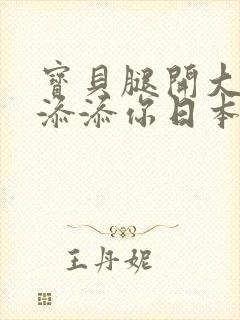 寶貝腿開大
添添你日本
王丹妮